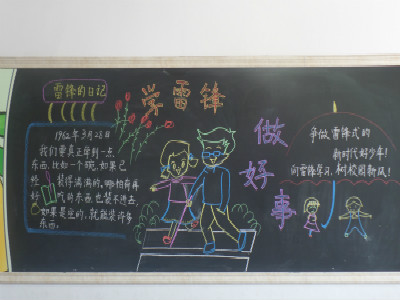 雷锋的日记
1962年3月28日
我们要真正学到一点
东西,比如一个碗,如果已
经装得满满的,哪怕有再
好吃的东西,也装不进去,
如果是空的,就能装许多
东西。
学雷锋
做好事
争做雷锋式的
新时代好少年!
向雷锋学习,树校园新风!